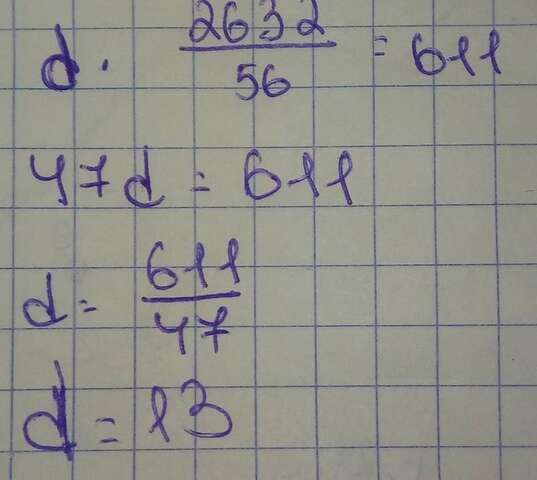 d · 2632/56 = 611
47d = 611
d = 611/47
d = 13